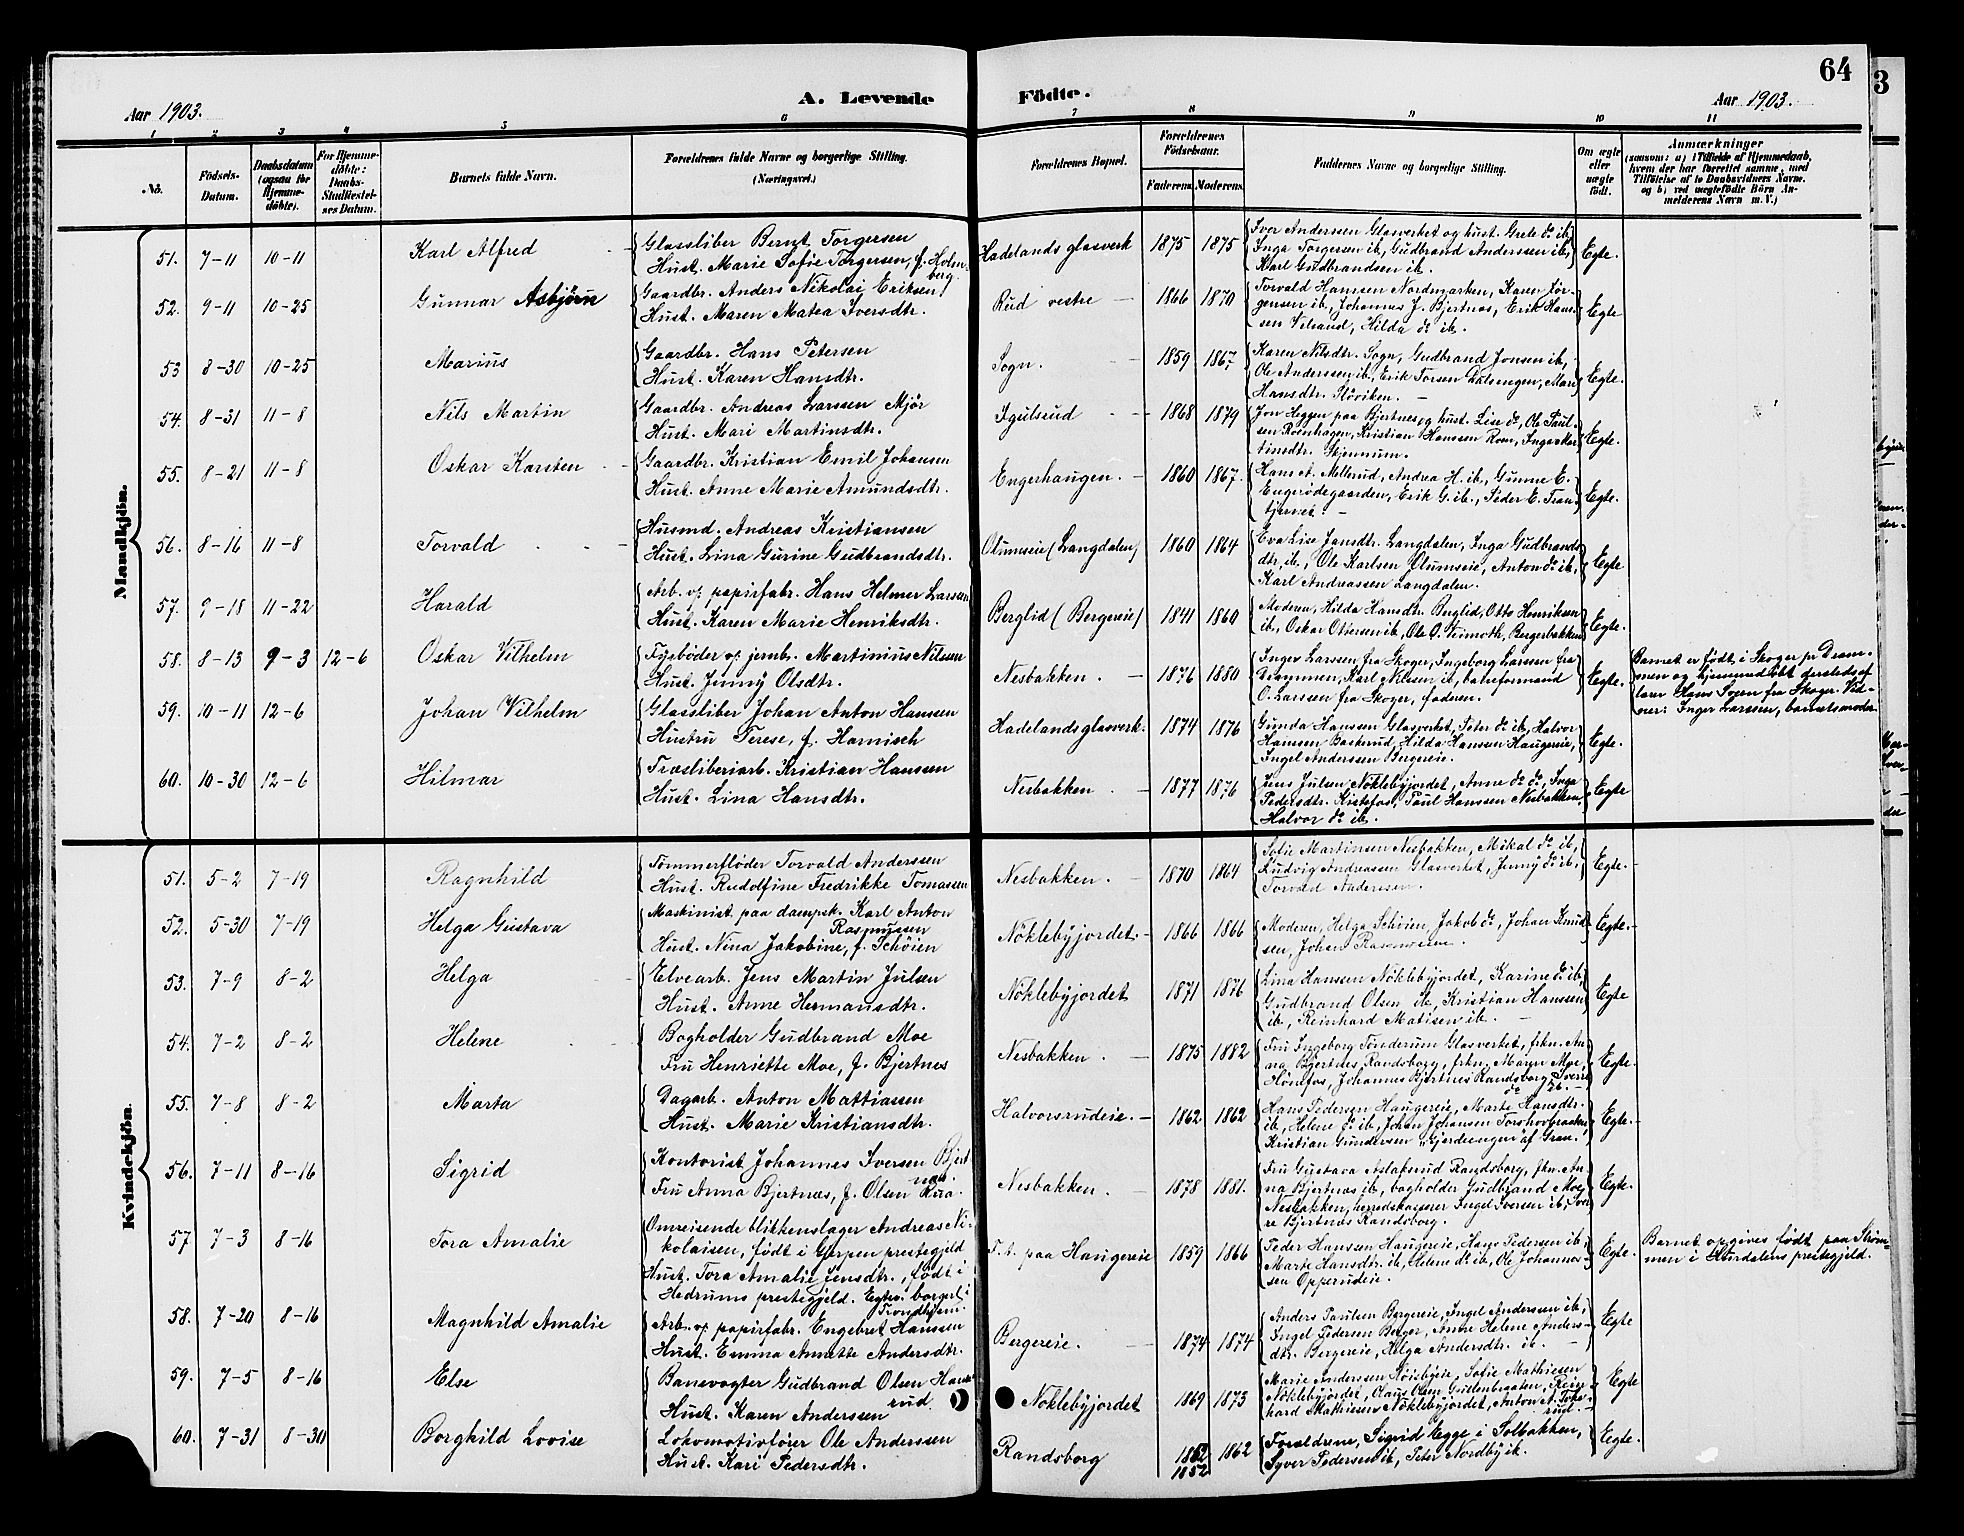 64
3
Aar 1903.
A. Levende Födte.
Aar 1903.
1 2 3 4 5 6 7 8 9 10 11
No.
Födsels-Datum.
Daabsdatum (ogsaa for Hjemmedöbte).
For Hjemmedöbte: Daabs-Stadfæstelses Datum.
Barnets fulde Navn.
Forældrenes fulde Navne og borgerlige Stilling. (Næringsvei.)
Forældrenes Bopæl.
Forældrenes Födselsaar.
Faderens. Moderens.
Faddernes Navne og borgerlige Stilling.
Om ægte eller uægte födt.
Anmærkninger
(saasom: a) i Tilfælde af Hjemmedaab, hvem der har forrettet samme, med Tilföielse af to Daabsvidners Navne, og b) ved uægtefödte Börn Anmelderens Navn m. V.)
Mandkjön.
51. 7-11 10-11 Karl Alfred
Glassliber Bernt Torgersen
Hust. Marie Sofie Torgersen, f. Holmberg.
Hadelands glasverk 1875 1875
Iver Anderssen Glasverket og hust. Grete do ib,
Inga Torgersen ib, Gudbrand Anderssen ib,
Karl Gudbrandsen ib.
Egte.
52. 9-11 10-25 Gunnar Asbjørn
Gaardbr. Anders Nikolai Eriksen
Hust. Maren Matea Iversdtr.
Rud vestre 1866 1870
Torvald Hansen Nordmarken, Karen Jör-
gensen ib, Johannes J. Bjertnes, Erik Hans-
sen Velsand, Hilda do ib.
Egte
53 8-30 10-25 Marius
Gaardbr. Hans Petersen
Hust. Karen Hansdtr.
Sogn. 1859 1867.
Karen Nilsdtr. Sogn, Gudbrand Jonsen ib,
Ole Anderssen ib, Erik Torsen Dalsengen, Mari
Hansdtr.
Egte.
54. 8-31 11-8 Nils Martin
Gaardbr. Andreas Larssen Mjör
Hust. Mari Martinsdtr.
Igulsrud 1868 1879
Jon Heggen paa Bjertnes og hust. Lise do, Ole Paul-
sen Roenhagen, Kristian Hanssen Roen, Inga Mar-
tinsdtr. Skjennum.
Egte.
55. 8-21 11-8 Oskar Karsten
Gaardbr. Kristian Emil Johansen
Hust. Anne Marie Amundsdtr.
Engerhaugen. 1860 1867.
Hans A. Mellerud, Andrea H. ib., Gunne E.
Engerödegaarden, Erik G. ib., Peder E. Tran-
tjernet.
Egte.
56. 8-16 11-8 Torvald
Husmd. Andreas Kristiansen
Hust. Lina Gurine Gudbrandsdtr.
Olumseie (Langdalen) 1860 1864
Eva Lise Jansdtr. Langdalen, Inga Gudbrands-
dtr. ib., Ole Karlsen Olumseie, Anton do ib,
Karl Andreassen Langdalen.
Egte
57. 9-18 11-22 Harald
Arb. v. papirfabr. Hans Helmer Larsen
Hust. Karen Marie Henriksdtr.
Berglid (Bergereie) 1841 1860
Moderen, Hilda Hansdtr. Berglid, Otto Henriksen
ib., Oskar Ottersen ib, Ole O. Veimoth, Bergerbakken
Egte.
58. 8-13 9-3 12-6 Oskar Vilhelm
Fyrböder v. jernb. Martinius Nilsen
Hust. Jenny Olsdtr.
Nesbakken. 1876 1880
Inger Larssen fra Skoger, Ingeborg Larssen fra
Drammen, Karl Nilsen ib, baneformand
O. Larssen fra Skoger, faderen.
Egte.
Barnet er födt i Skoger pr Dram-
men og hjemmedöbt dersteds af
lærer Hans Sveen fra Skoger. Vid-
ner: Inger Larssen, barnets moder
59. 10-11 12-6 Johan Vilhelm
Glassliber Johan Anton Hansen
Hustru Terese, f. Hamisch
Hadelands glasverk. 1874 1876
Gunda Hanssen Glasverket, Peter do ib, Halvor
Hansen Baskerud, Hilda Hanssen Haugereie,
Ingel Anderssen Bergereie.
Egte.
60. 10-30 12-6 Hilmar
Træsliberiarb. Kristian Hanssen
Hust. Lina Hansdtr.
Nesbakken. 1877 1876
Jens Julsen Nöklebyjordet, Anne do do, Inga
Pedersdtr. Kistefos, Paul Hanssen Nesbakken,
Halvor do ib.
Egte
Kvindekjön.
51. 5-2 7-19 Ragnhild
Tömmerflöder Torvald Anderssen
Hust. Rudolfine Fredrikke Tomassen
Nesbakken. 1870 1864
Sofie Martinsen Nesbakken, Mikal do ib,
Ludvig Andreassen Glasverket, Jenny do ib,
Torvald Anderssen.
Egte.
52. 5-30 7-19 Helga Gustava
Maskinist paa dampsk. Karl Anton
Rasmussen
Hust. Nina Jakobine, f. Schöien
Nöklebyjordet 1866 1866
Moderen, Helga Schöien, Jakob do, Johan Knud-
sen, Johan Rasmussen.
Egte.
53. 7-9 8-2 Helga
Elvearb. Jens Martin Julsen
Hust. Anne Hermansdtr.
Nöklebyjordet 1871 1876
Lina Hansen Nöklebyjordet, Karine do ib,
Gudbrand Olsen ib, Kristian Hanssen
ib., Reinhard Matisen ib.
Egte
54. 7-2 8-2 Helene
Bogholder Gudbrand Moe
Fru Henriette Moe, f. Bjertnes
Nesbakken. 1875 1882
Fru Ingeborg Tinderum Glasverket, frkn. An-
na Bjertnes Randsborg, frkn. Maren Moe,
Hönefos, Johannes Bjertnes Randsborg, Sverre
do ib.
Egte.
55. 7-8 8-2 Marta
Dagarb. Anton Mattiassen
Hust. Marie Kristiansdtr.
Halvorsrudeie. 1862 1862
Hans Pedersen Haugereie, Marte Hansdtr.
ib, Helene do ib, Johan Johansen Torshovbraaten
Kristian Gundersen Gjerdeengen af Gran.
Egte.
56. 7-11 8-16 Sigrid
Kontorist Johannes Iversen Bjert-
nes.
Fru Anna Bjertnæs, f. Olsen Rua.
Nesbakken. 1878 1881.
Fru Gustava Aslakerud Randsborg, fkn. An-
na Bjertnes ib, bogholder Gudbrand Moe
Nesbakken, herredskasserer Ingel Iversen ib, Sver-
re Bjertnæs Randsborg.
Egte.
57 7-3 8-16 Tora Amalie
Omreisende blikkenslager Andreas Ni-
kolaisen, födt i Gjerpen prestegjeld
Hust. Tora Amalie Jensdtr., födt i
Hedrums prestegjeld. Egtev. borgerl. i
Trondhjem.
T. t. paa Haugereie 1859 1866
Peder Hanssen Haugereie, Hans Pedersen ib,
Marte Hansdtr. ib, Helene do ib, Ole Johannes-
sen Opperudeie.
Egte.
Barnet opgives födt paa Ström-
men i Hurdalens prestegjeld.
58. 7-20 8-16 Magnhild Amalie
Arb. v. papirfabr. Engebret Hanssen
Hust. Emma Annette Andersdtr.
Bergereie. 1874 1874
Anders Paulsen Bergereie, Ingel Anderssen ib,
Ingel Pedersen Berger, Anne Helene Anders-
dtr. Bergereie, Helga Andersdtr. ib.
Egte
59. 7-5 8-16 Else
Banevogter Gudbrand Olsen Hans-
rud.
Hust. Karen Anderssen
Nöklebyjordet 1869 1873
Marie Anderssen Höisbyeie, Sofie Mathiesen
Nöklebyjordet, Claus Olsen Gullenbraaten, Rein-
hard Mathiesen Nöklebyjordet, Anton A. Toke-
rud.
Egte
60. 7-31 8-30 Borghild Lovise
Lokomotivförer Ole Anderssen
Hust. Kari Pedersdtr.
Randsborg 1862 1852 1862
Forældrene, Sigrid Egge i Solbakken,
Syver Pedersen ib, Peter Nordby ib.
Egte.